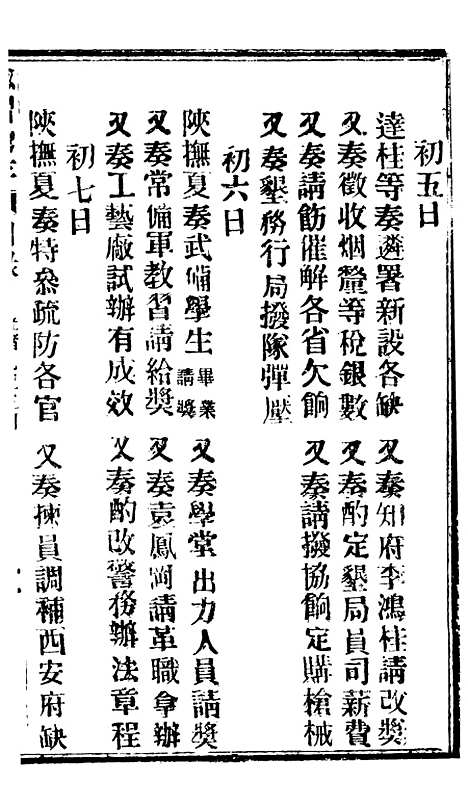 初五日
達桂等奏遴署新設各缺　又奏知府李鴻桂請改獎
又奏徵收烟釐等稅銀數　又奏酌定墾局員司薪費
又奏請飭催解各省欠餉　又奏請撥協餉定購槍械
又奏墾務行局撥隊彈壓
初六日
陝撫夏奏武備學生畢業請獎　又奏學堂出力人員請獎
又奏常備軍教習請給獎　又奏袁鳳岡請革職拿辦
又奏工藝廠試辦有成效　又奏酌改警務辦法章程
初七日
陝撫夏奏特參疏防各官　又奏揀員調補西安府缺